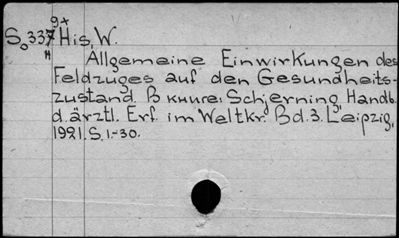 9+
S₀337 His, W.
н Allgemeine Einwirkungen des
Feldzuges auf den Gesundheits-
zustand. В книге: Schjerning, Handb.
d. ärztl. Erf. im Weltkr. Bd. 3. Leipzig,
1921. S. 1-30.